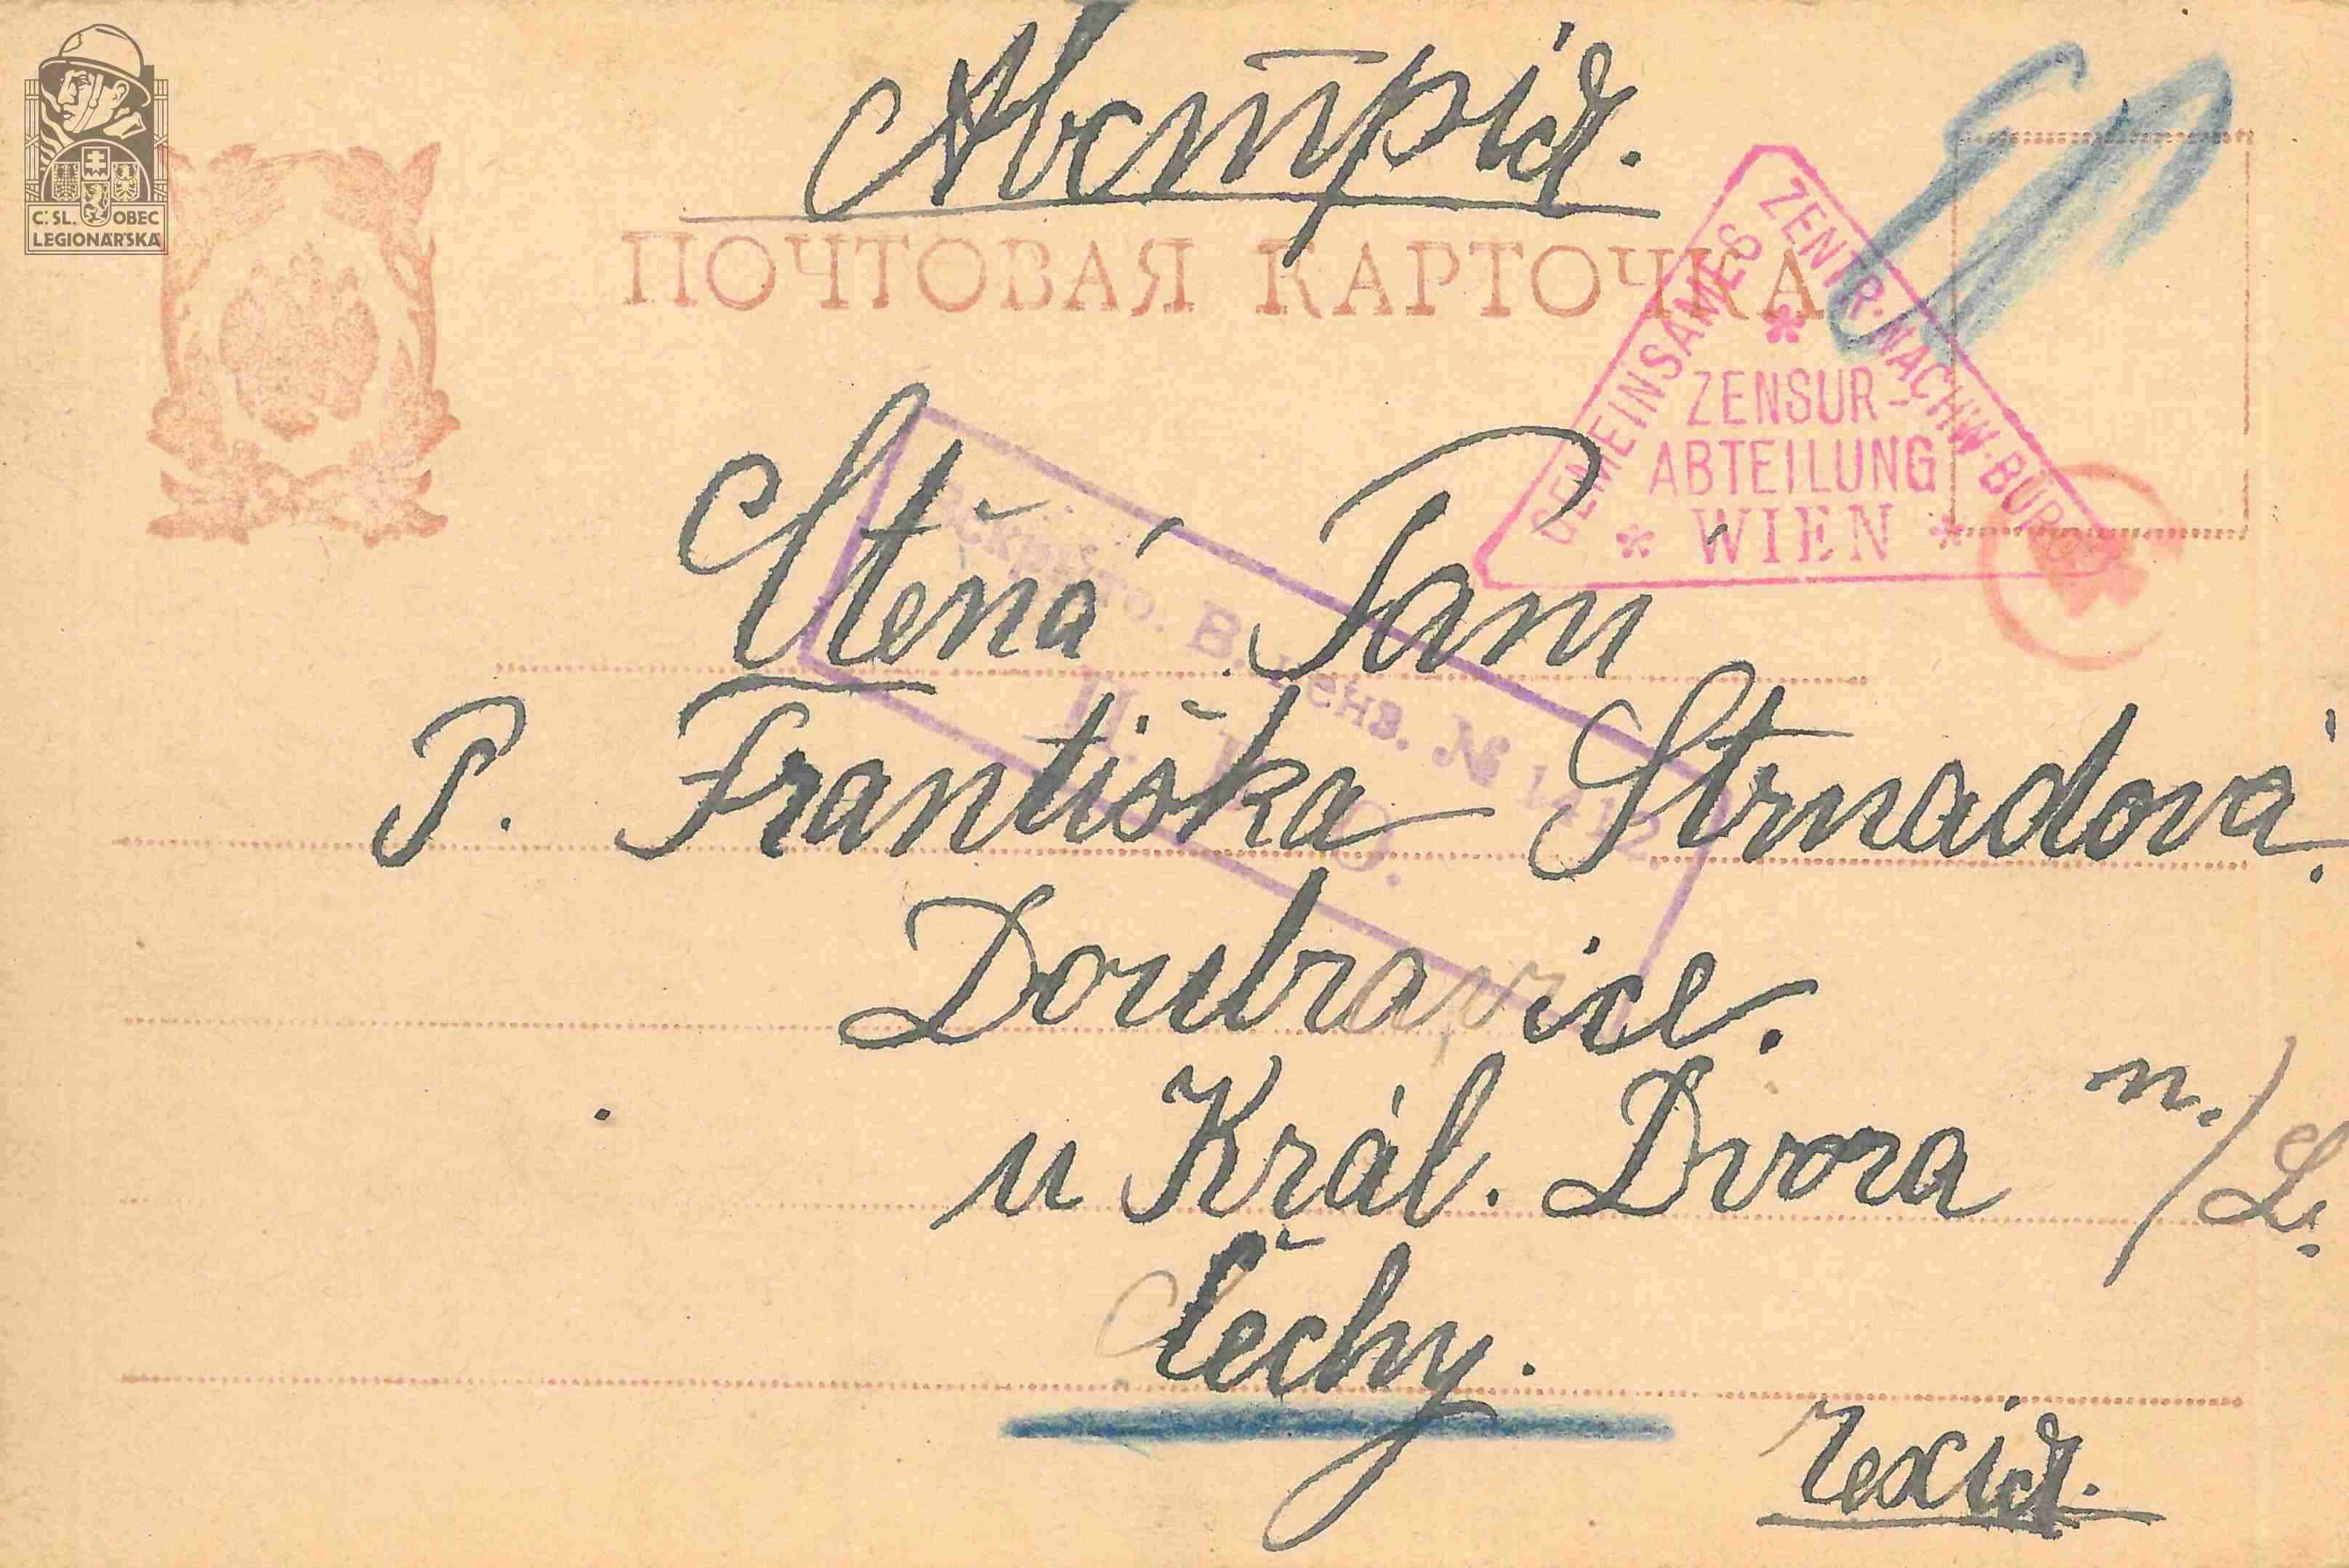 Č: SL. OBEC
LEGIONÁŘSKÁ
Австрія.
ПОЧТОВАЯ КАРТОЧКА
GEMEINSAMES ZENTR. NACHW. BUREAU
ZENSUR-
ABTEILUNG
WIEN
Ctěná Paní
В. Ценз. № 1412
P. Františka Strnadová.
Doubravice.
u Král. Dvora n./L.
Čechy.
Чехія.